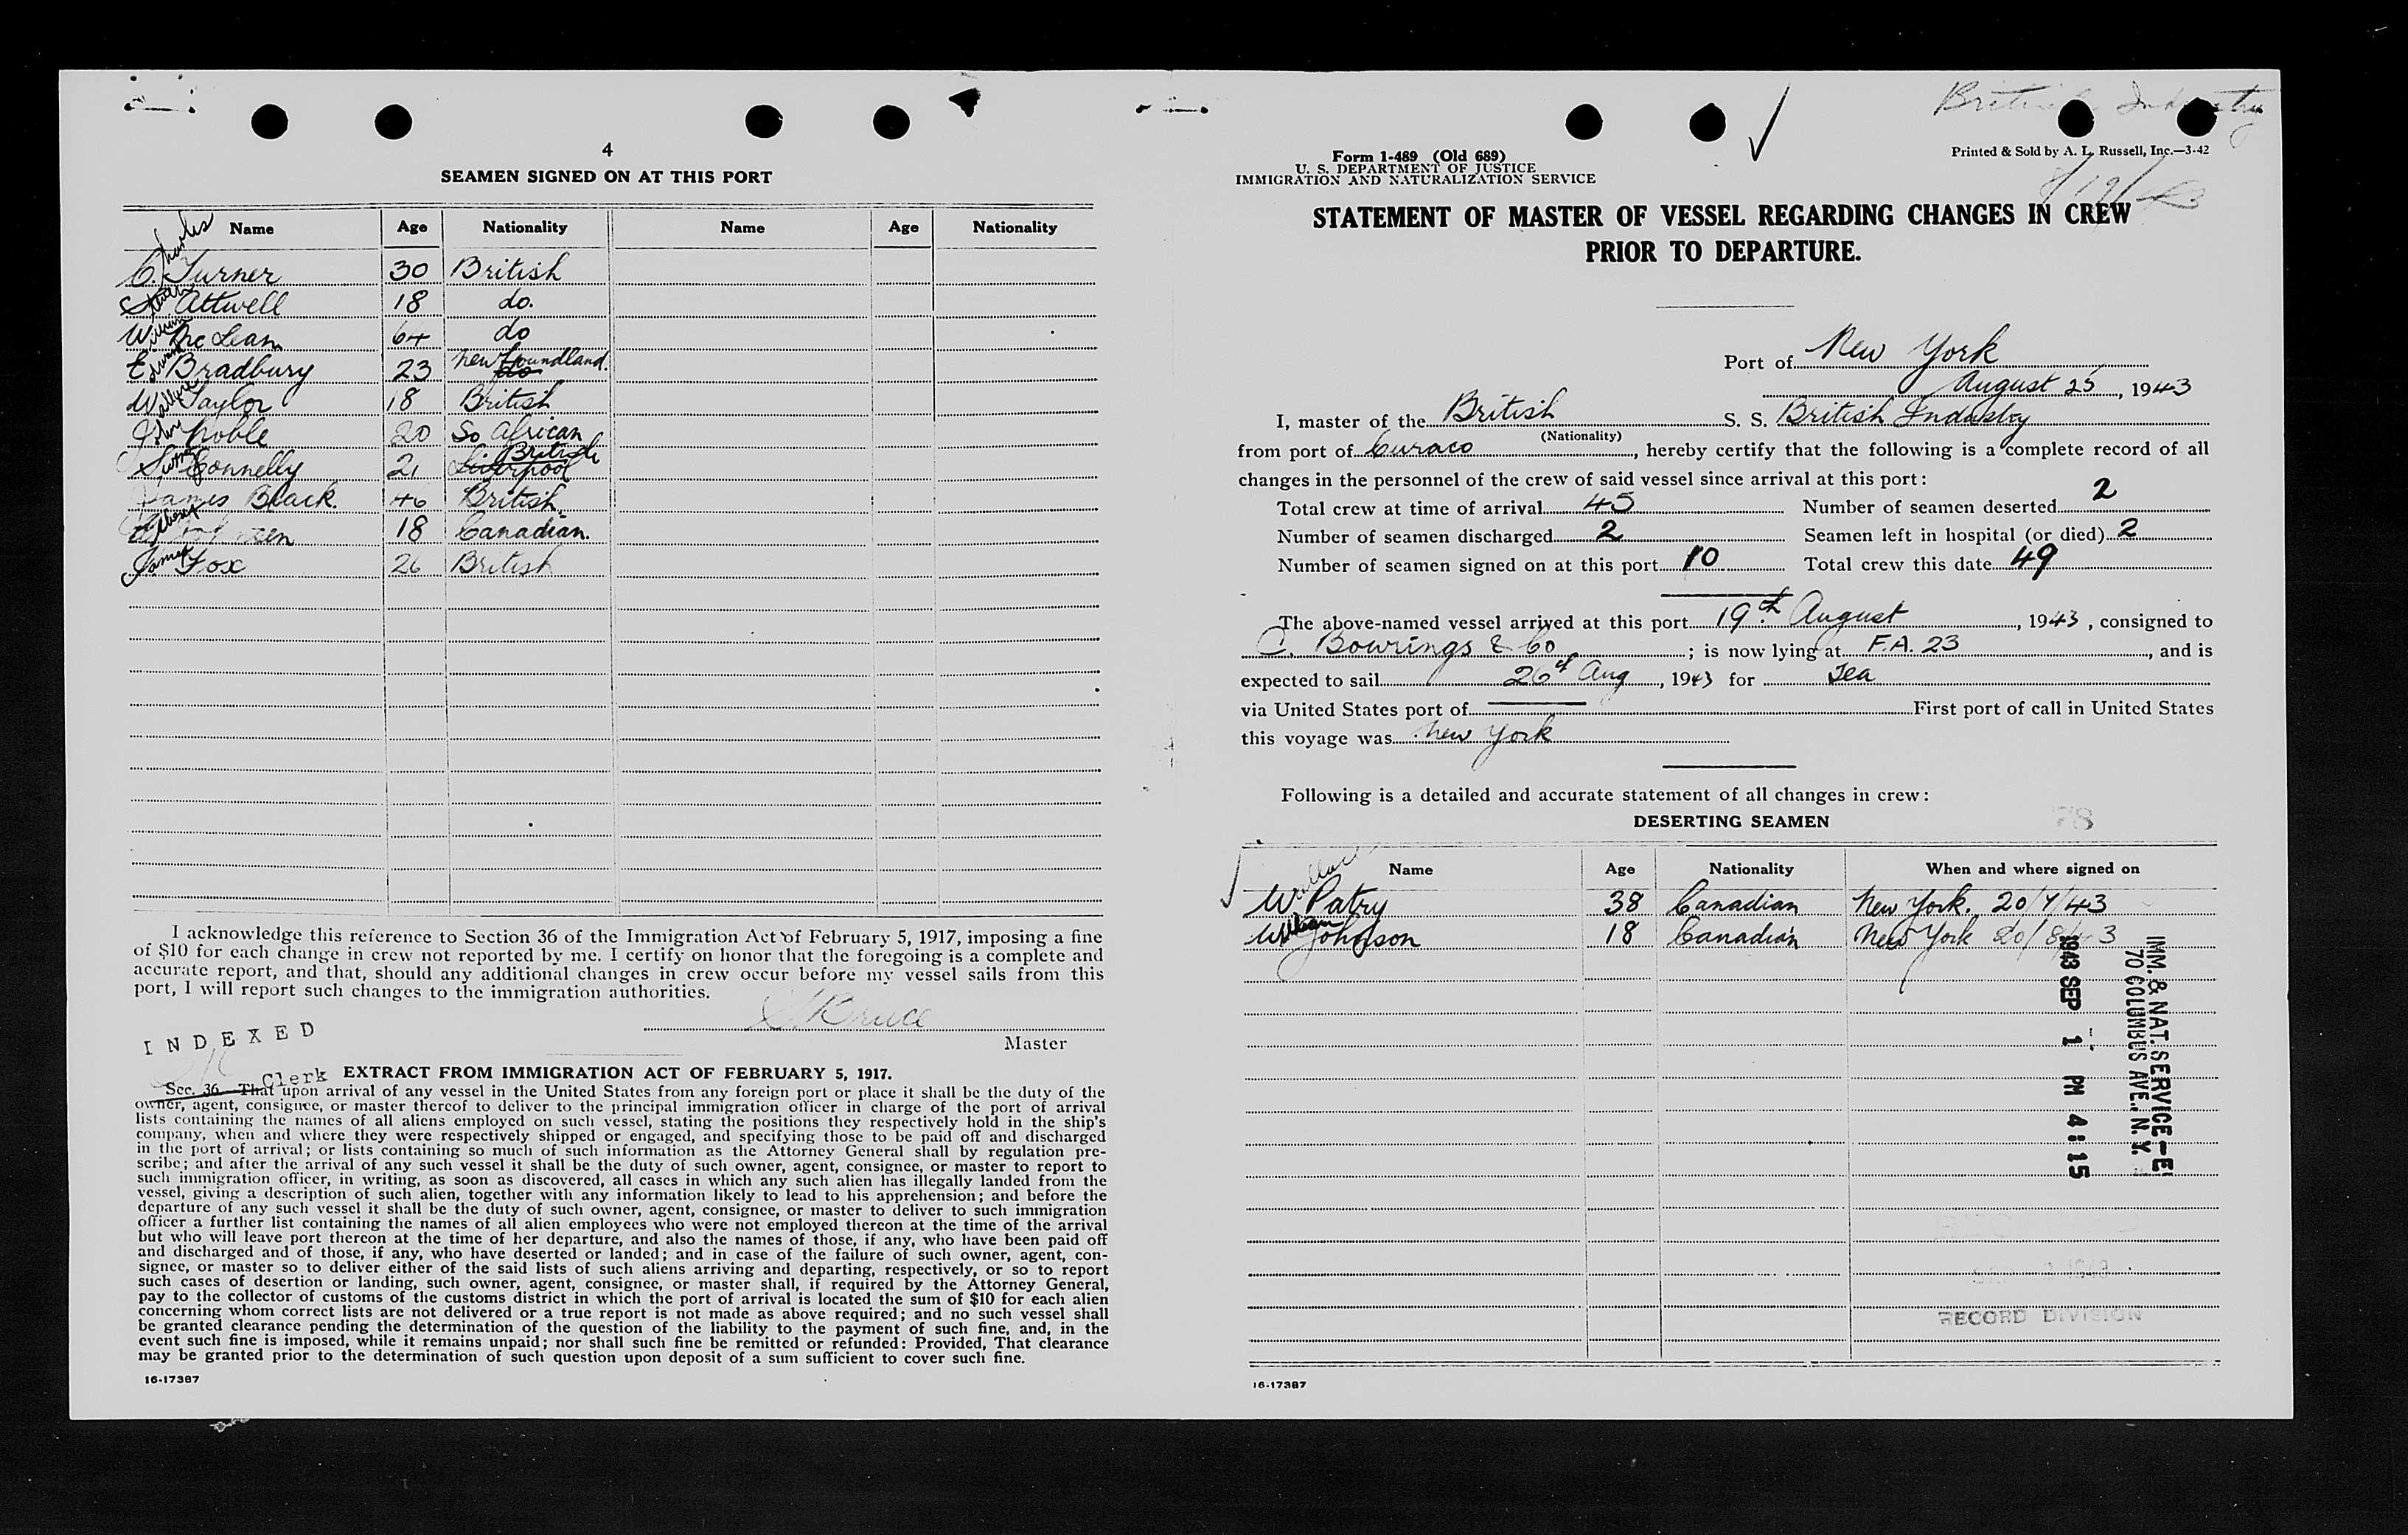 4
SEAMEN SIGNED ON AT THIS PORT
Name Age Nationality Name Age Nationality
Charles
C. Turner 30 British
S. Attwell 18 do.
William
W. McLean 64 do
Edward
E. Bradbury 23 Newfoundland. do
W. Taylor 18 British
John
J. Noble 20 So African
S. Connelly 21 Liverpool British
James Black. 46 British.
18 Canadian.
James
J. Fox 26 British
I acknowledge this reference to Section 36 of the Immigration Act of February 5, 1917, imposing a fine
of $10 for each change in crew not reported by me. I certify on honor that the foregoing is a complete and
accurate report, and that, should any additional changes in crew occur before my vessel sails from this
port, I will report such changes to the immigration authorities.
S. Bruce
Master
INDEXED
Clerk
EXTRACT FROM IMMIGRATION ACT OF FEBRUARY 5, 1917.
Sec. 36. That upon arrival of any vessel in the United States from any foreign port or place it shall be the duty of the
owner, agent, consignee, or master thereof to deliver to the principal immigration officer in charge of the port of arrival
lists containing the names of all aliens employed on such vessel, stating the positions they respectively hold in the ship's
company, when and where they were respectively shipped or engaged, and specifying those to be paid off and discharged
in the port of arrival; or lists containing so much of such information as the Attorney General shall by regulation pre-
scribe; and after the arrival of any such vessel it shall be the duty of such owner, agent, consignee, or master to report to
such immigration officer, in writing, as soon as discovered, all cases in which any such alien has illegally landed from the
vessel, giving a description of such alien, together with any information likely to lead to his apprehension; and before the
departure of any such vessel it shall be the duty of such owner, agent, consignee, or master to deliver to such immigration
officer a further list containing the names of all alien employees who were not employed thereon at the time of the arrival
but who will leave port thereon at the time of her departure, and also the names of those, if any, who have been paid off
and discharged and of those, if any, who have deserted or landed; and in case of the failure of such owner, agent, con-
signee, or master so to deliver either of the said lists of such aliens arriving and departing, respectively, or so to report
such cases of desertion or landing, such owner, agent, consignee, or master shall, if required by the Attorney General,
pay to the collector of customs of the customs district in which the port of arrival is located the sum of $10 for each alien
concerning whom correct lists are not delivered or a true report is not made as above required; and no such vessel shall
be granted clearance pending the determination of the question of the liability to the payment of such fine, and, in the
event such fine is imposed, while it remains unpaid; nor shall such fine be remitted or refunded: Provided, That clearance
may be granted prior to the determination of such question upon deposit of a sum sufficient to cover such fine.
16-17387
British Industry
8/19/43
Form 1-489 (Old 689)
U. S. DEPARTMENT OF JUSTICE
IMMIGRATION AND NATURALIZATION SERVICE
Printed & Sold by A. L. Russell, Inc.—3-42
STATEMENT OF MASTER OF VESSEL REGARDING CHANGES IN CREW
PRIOR TO DEPARTURE.
Port of New York
August 25, 1943
I, master of the British S. S. British Industry
(Nationality)
from port of Curaco, hereby certify that the following is a complete record of all
changes in the personnel of the crew of said vessel since arrival at this port:
Total crew at time of arrival 45 Number of seamen deserted 2
Number of seamen discharged 2 Seamen left in hospital (or died) 2
Number of seamen signed on at this port 10 Total crew this date 49
The above-named vessel arrived at this port 19th August, 1943, consigned to
C. Bowrings & Co; is now lying at F.A. 23, and is
expected to sail 26th Aug, 1943 for Sea
via United States port of First port of call in United States
this voyage was New York
Following is a detailed and accurate statement of all changes in crew:
DESERTING SEAMEN 78
Name Age Nationality When and where signed on
Wallace
W Patry 38 Canadian New York. 20/7/43
William
W Johnson 18 Canadian New York 20/8/43
IMM. & NAT. SERVICE-E
70 COLUMBUS AVE., N. Y.
1943 SEP 1 PM 4:15
RECORD DIVISION
16-17387